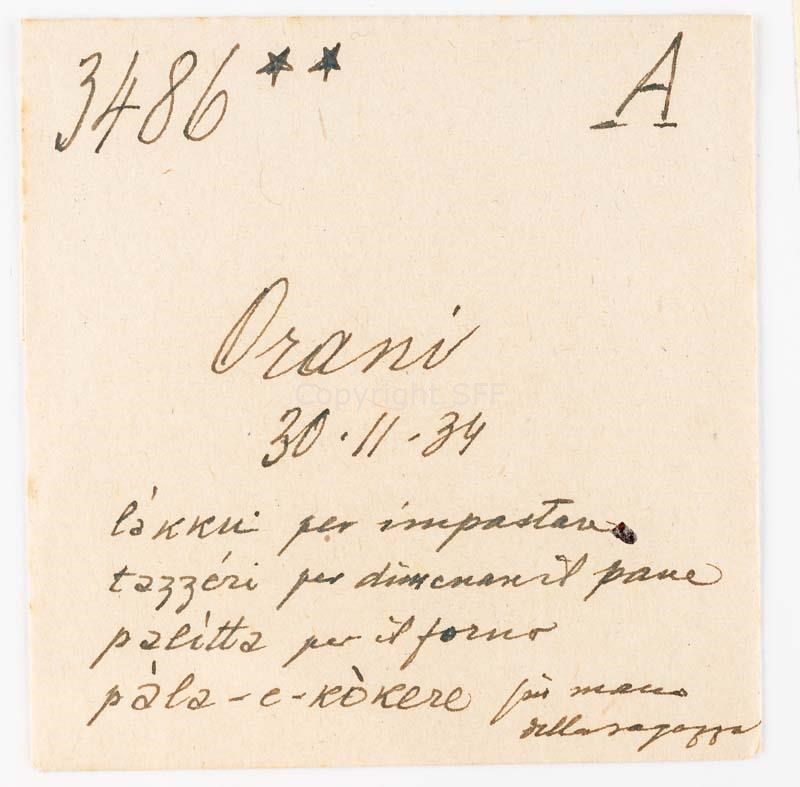 3486** A
Orani
Copyright SFF
30·11·34
lákku per impastare
tazzéri per dimenare il pane
palítta per il forno
pàla-e-kòkere
della ragazza